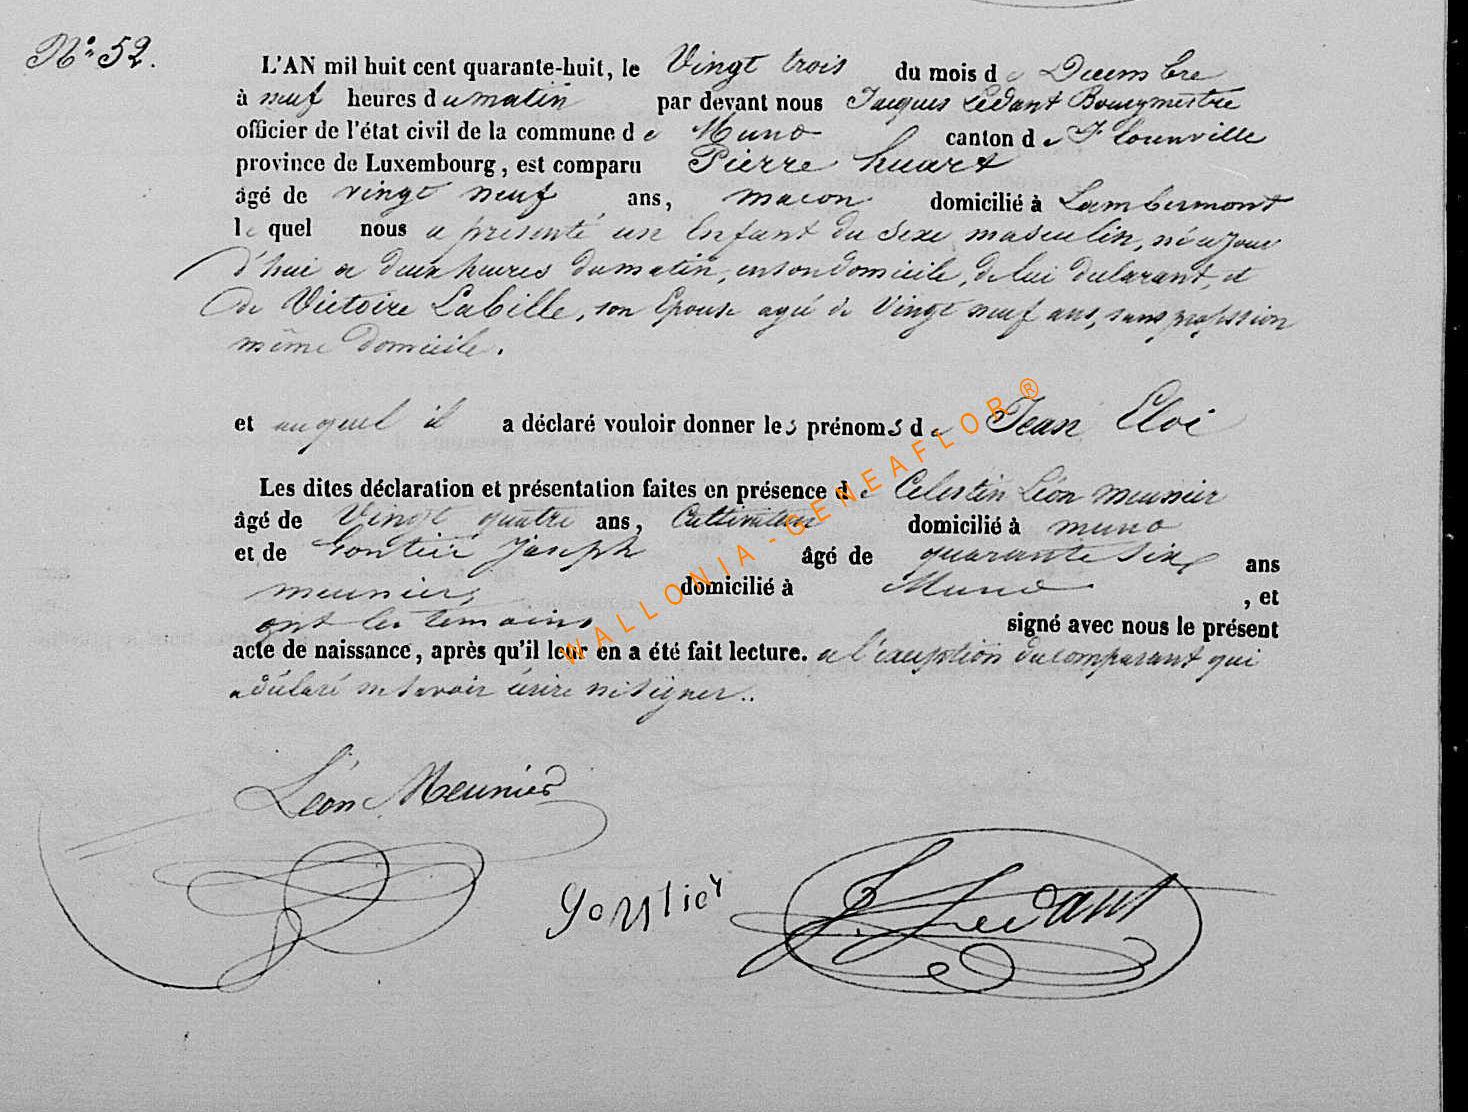 N° 52.
L'AN mil huit cent quarante-huit, le Vingt trois du mois de Decembre
à neuf heures du matin par devant nous Jacques Ledant Bourgmestre
officier de l'état civil de la commune de Muno canton de Florenville
province de Luxembourg, est comparu Pierre huart
âgé de vingt neuf ans, macon domicilié à Lambermont
le quel nous a présenté un Enfant du Sexe masculin, né ce jour
d'hui a deux heures du matin, en son domicile, de lui declarant, et
de Victoire Labille, son Epouse agée de Vingt neuf ans, sans profession
même domicile.
et auquel il a déclaré vouloir donner les prénoms de Jean Eloi
Les dites déclaration et présentation faites en présence de Celestin Léon meunier
âgé de Vingt quatre ans, Cultivateur domicilié à muno
et de Gontier Joseph âgé de quarante six ans
meunier, domicilié à Muno, et
ont les temoins signé avec nous le présent
acte de naissance, après qu'il leur en a été fait lecture. a l'exception du comparant qui
a déclaré ne savoir écrire ni signer..
Léon Meunier
gontier
J. Ledant
WALLONIA - GENEAFLOR ®